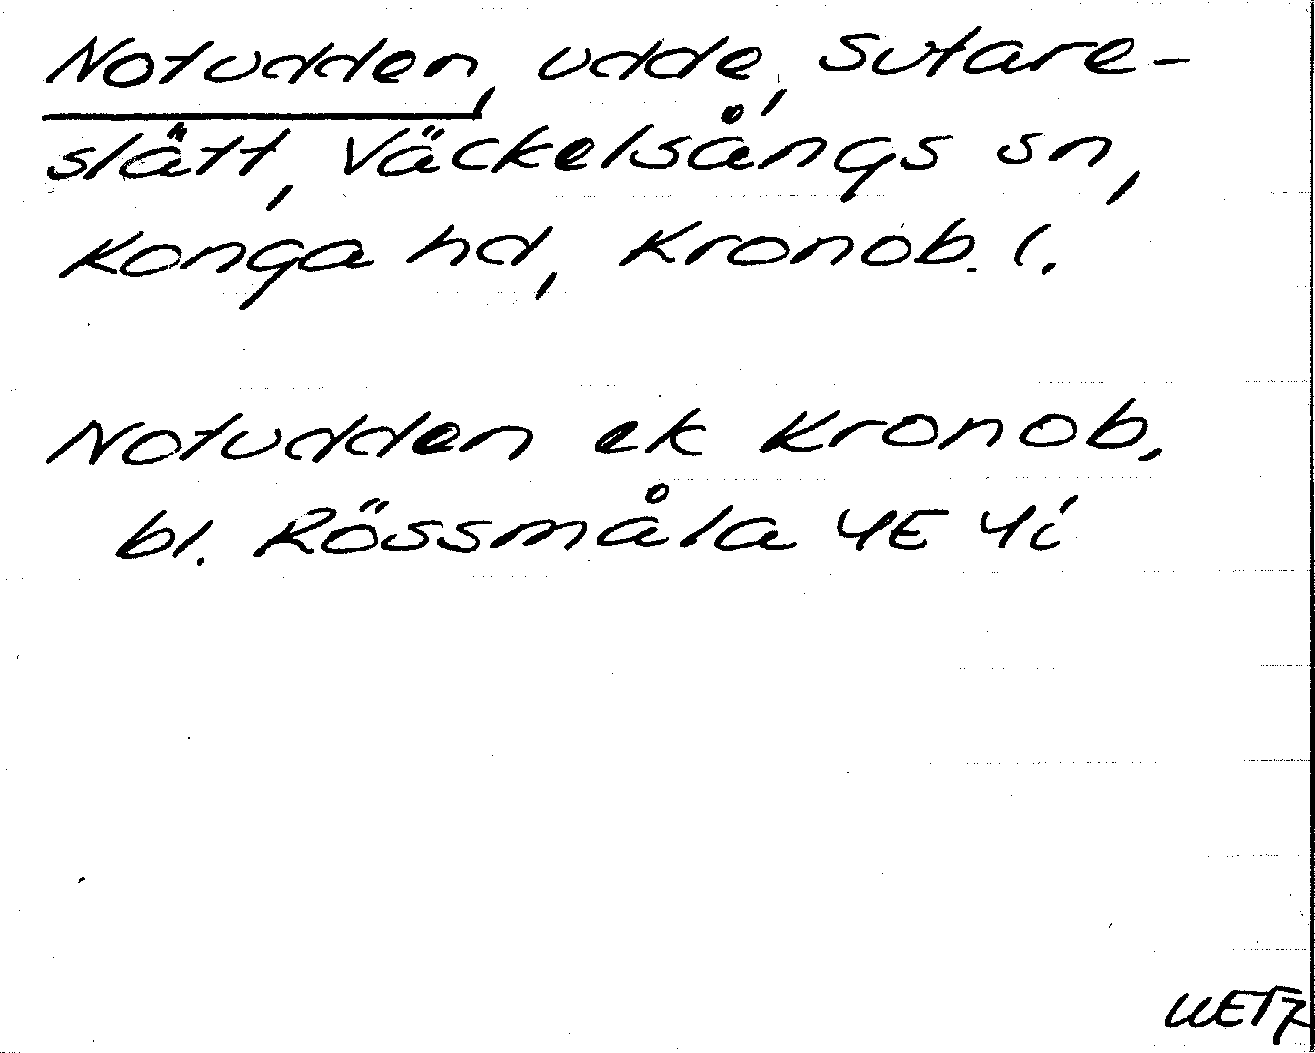 Notudden, udde, Sutare-
slätt, Väckelsångs sn,
Konga hd, Kronob. l.
Notudden ek Kronob.
bl. Rössmåla 4E 4i